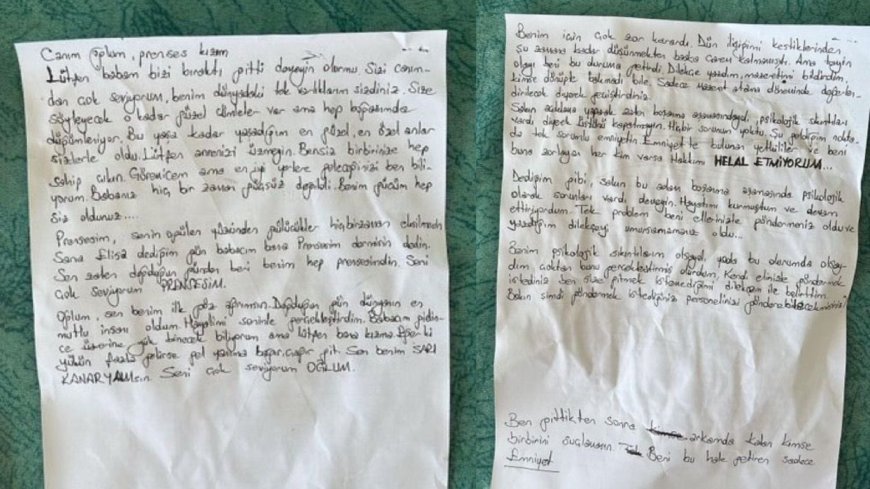 Canım oğlum, prenses kızım
Lütfen babam bizi bıraktı gitti demeyin olurmu. Sizi canım-
dan çok seviyorum, benim dünyadaki tek varlıklarım sizdiniz. Size
söyleyecek o kadar güzel cümleler var ama hep boğazımda
düğümleniyor. Bu yaşa kadar yaşadığım en güzel, en özel anlar
sizlerle oldu. Lütfen annenizi üzmeyin. Bensiz birbirinize hep
sahip çıkın. Göremicem ama en iyi yerlere geleceğinizi ben bili-
yorum. Babanız hiç bir zaman güçsüz değildi. Benim gücüm hep
siz oldunuz....
Prensesim, senin o gülen yüzünden gülücükler hiçbirzaman eksilmesin
Sana Elisa dediğim gün babacım bana Prensesim dermisin dedin.
Sen zaten doğduğun günden beri benim hep prensesimdin. Seni
çok seviyorum PRENSESİM.
Oğlum, sen benim ilk göz ağrımsın. Doğduğun gün dünyanın en
mutlu insanı oldum. Hayalimi seninle gerçekleştirdim. Babacım gidin-
ce üzerine yük binecek biliyorum ama lütfen bana kızma. Eğer ki
yükün fazla gelirse gel yanıma bağır, çağır git. Sen benim SARI
KANARYAMsın. Seni çok seviyorum OĞLUM.
Benim için çok zor karardı. Dün ilişiğimi kestiklerinden,
şu zamana kadar düşünmekten başka çarem kalmamıştı. Ama tayin
olayı beni bu duruma getirdi. Dilekçe yazdım, mazeretimi bildirdim,
kimse dönüpte bakmadı bile. Sadece mazeret atama döneminde değerlen-
dirilecek diyerek geçiştirdiniz.
Sakın açıklama yaparak zaten boşanma aşamasındaydı, psikolojik sıkıntıları
vardı diyerek kapatmayın. Hiçbir sorunum yoktu. Şu geldiğim nokta-
da tek sorumlu emniyettir. Emniyet'te bulunan yetkililer ve beni
buna zorlayan her kim varsa Hakkımı HELAL ETMİYORUM...
Dediğim gibi, sakın bu adam boşanma aşamasında psikolojik
olarak sorunları vardı demeyin. Hayatımı kurmuştum ve devam
ettiriyordum. Tek problem beni ellerinizle göndermeniz oldu ve
yazdığım dilekçeyi umursamamanız oldu...
Benim psikolojik sıkıntılarım olsaydı, yada bu durumda olsay-
dım çoktan bunu gerçekleştirmiş olurdum. Kendi elinizle göndermek
istediniz ben size gitmek istemediğimi dilekçem ile belirttim.
Sakın şimdi göndermek istediğiniz personelinizi
Ben gittikten sonra arkamda kalan kimse
birbirini suçlamasın. Beni bu hale getiren sadece
Emniyet